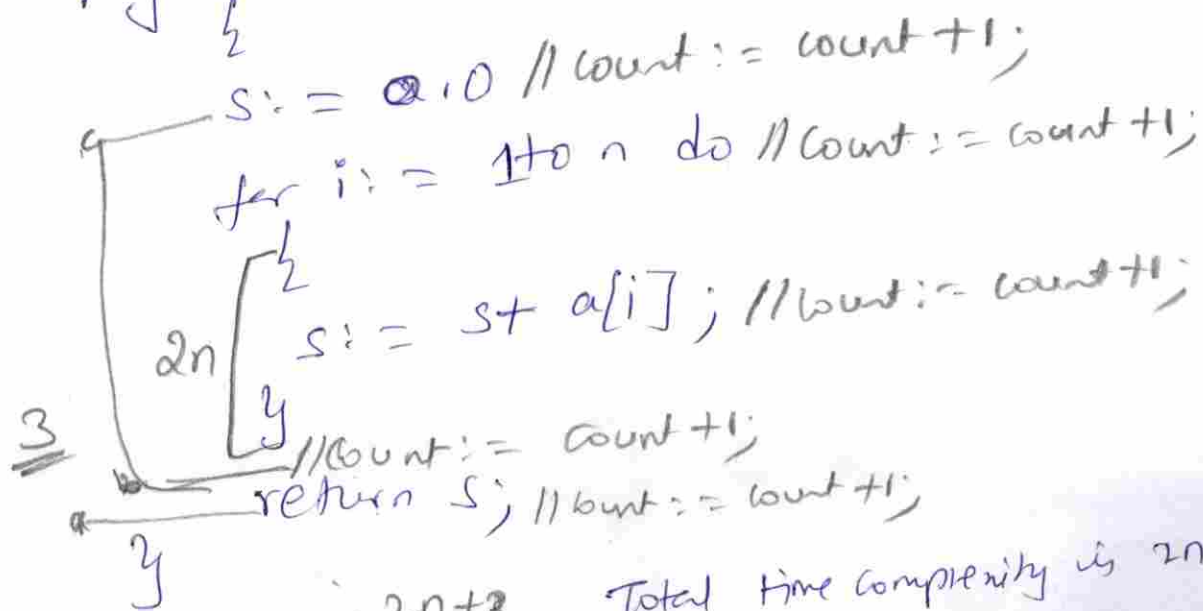 {
s:= 0.0 // count:= count +1;
for i:= 1 to n do // count:= count +1;
{
2n s:= s+ a[i]; // count:= count +1;
}
3 // count:= count +1;
return s; // count:= count +1;
}
2n+3 Total time complexity is 2n